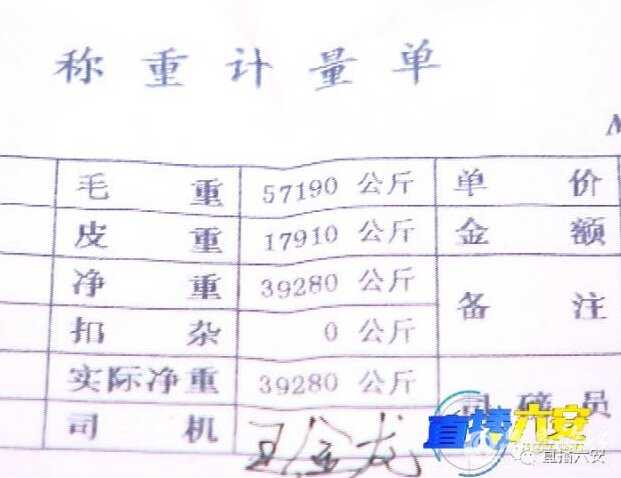 称重计量单
毛重 57190 公斤 单价
皮重 17910 公斤 金额
净重 39280 公斤 备注
扣杂 0 公斤
实际净重 39280 公斤 司磅员
司机 王金龙
直播六安
直播六安